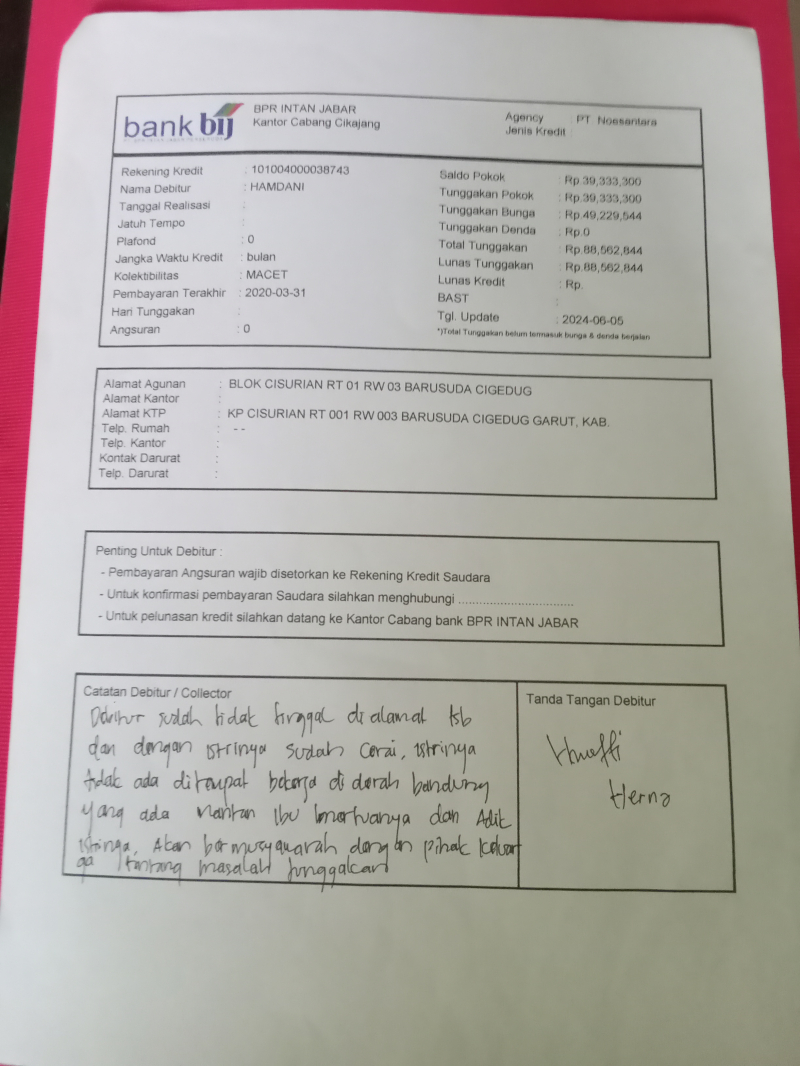 bank bij
BPR INTAN JABAR
Kantor Cabang Cikajang
Agency : PT. Noesantara
Jenis Kredit
Rekening Kredit : 101004000038743
Nama Debitur : HAMDANI
Tanggal Realisasi :
Jatuh Tempo :
Plafond : 0
Jangka Waktu Kredit : bulan
Kolektibilitas : MACET
Pembayaran Terakhir : 2020-03-31
Hari Tunggakan :
Angsuran : 0
Saldo Pokok : Rp.39,333,300
Tunggakan Pokok : Rp.39,333,300
Tunggakan Bunga : Rp.49,229,544
Tunggakan Denda : Rp.0
Total Tunggakan : Rp.88,562,844
Lunas Tunggakan : Rp.88,562,844
Lunas Kredit : Rp.
BAST :
Tgl. Update : 2024-06-05
*)Total Tunggakan belum termasuk bunga & denda berjalan
Alamat Agunan : BLOK CISURIAN RT 01 RW 03 BARUSUDA CIGEDUG
Alamat Kantor :
Alamat KTP : KP CISURIAN RT 001 RW 003 BARUSUDA CIGEDUG GARUT, KAB.
Telp. Rumah : - -
Telp. Kantor :
Kontak Darurat :
Telp. Darurat :
Penting Untuk Debitur :
- Pembayaran Angsuran wajib disetorkan ke Rekening Kredit Saudara
- Untuk konfirmasi pembayaran Saudara silahkan menghubungi .................................
- Untuk pelunasan kredit silahkan datang ke Kantor Cabang bank BPR INTAN JABAR
Catatan Debitur / Collector
Debitur sudah tidak tinggal di alamat tsb
dan dengan istrinya sudah cerai, istrinya
tidak ada ditempat bekerja di derah bandung
yang ada mantan Ibu mertuanya dan Adik
istringa, Akan bermusyawarah dengan pihak keluar
ga tentang masalah tunggakan
Tanda Tangan Debitur
Herna